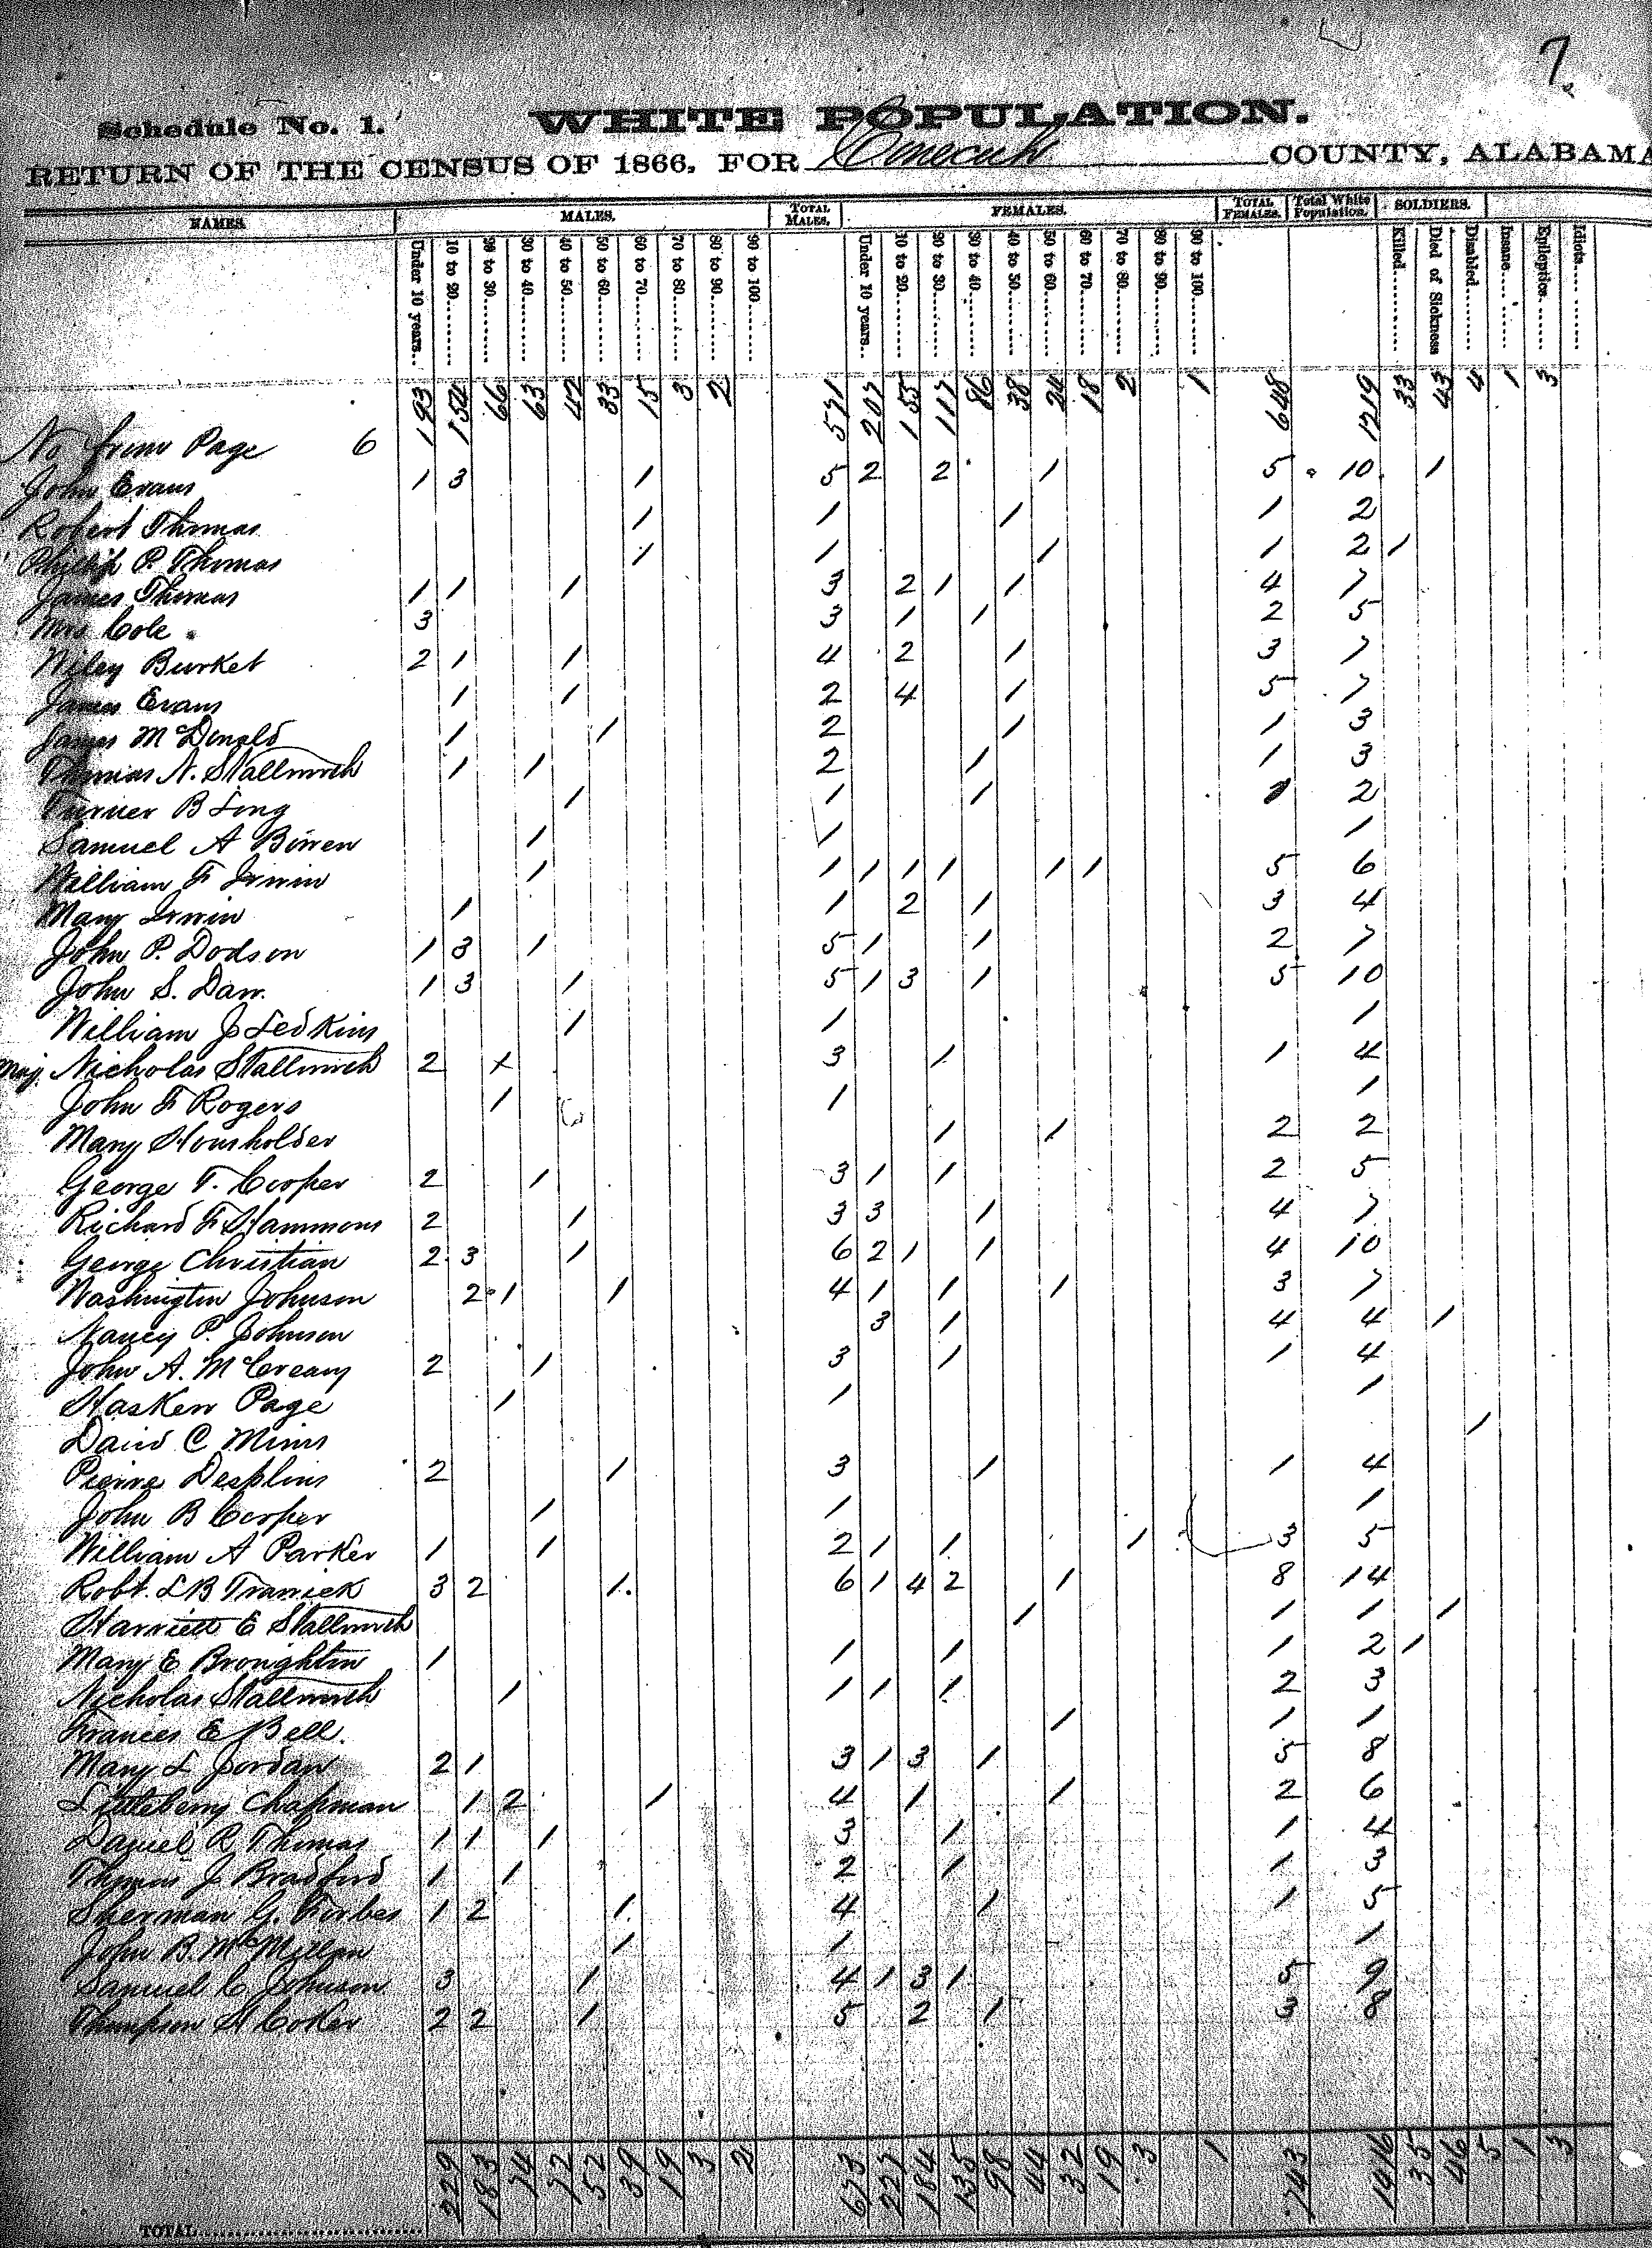 7
Schedule No. 1. WHITE POPULATION.
RETURN OF THE CENSUS OF 1866, FOR Conecuh COUNTY, ALABAMA
NAMES. MALES. TOTAL MALES. FEMALES. TOTAL FEMALES. Total White Population. SOLDIERS.
Under 10 years. 10 to 20 20 to 30 30 to 40 40 to 50 50 to 60 60 to 70 70 to 80 80 to 90 90 to 100 Under 10 years. 10 to 20 20 to 30 30 to 40 40 to 50 50 to 60 60 to 70 70 to 80 80 to 90 90 to 100 Killed Died of Sickness Disabled Insane Epileptics Idiots
No from Page 6 193 154 66 63 42 33 15 3 2 571 207 155 117 86 38 24 18 2 1 648 1219 33 43 4 1 3
John Evans 1 3 1 5 2 2 1 5 10 1
Robert Thomas 1 1 1 1 2
Phillip P. Thomas 1 1 1 1 2 1
James Thomas 1 1 1 3 2 1 1 4 7
Mrs Cole 3 3 1 1 2 5
Wiley Burket 2 1 1 4 2 1 3 7
James Evans 1 1 2 4 1 5 7
James McDonald 1 1 2 1 1 3
Thomas N. Stallworth 1 1 2 1 1 3
Turner B Long 1 1 1 1 2
Samuel A Bowen 1 1 1
William F Irwin 1 1 1 1 1 1 1 5 6
Mary Irwin 1 1 2 1 3 4
John P. Dodson 1 3 1 5 1 1 2 7
John S. Daw. 1 3 1 5 1 3 1 5 10
William J Ledkins 1 1 1
Maj. Nicholas Stallworth 2 x 3 1 1 4
John F Rogers 1 1 1
Mary Housholder 1 1 2 2
George T. Cooper 2 1 3 1 1 2 5
Richard F Hammons 2 1 3 3 1 4 7
George Christian 2 3 1 6 2 1 1 4 10
Washington Johnson 2 1 1 4 1 1 1 3 7
Nancy P. Johnson 3 1 4 4 1
John A. McCreary 2 1 3 1 1 4
Hasken Page 1 1 1
David C Mims 1
Pierre Desplins 2 1 3 1 1 4
John B Cooper 1 1 1
William A Parker 1 1 2 1 1 1 3 5
Robt. L B Trawick 3 2 1 6 1 4 2 1 8 14
Harriett E Stallworth 1 1 1 1
Mary E Broughton 1 1 1 1 2 1
Nicholas Stallworth 1 1 1 1 2 3
Frances E Bell. 1 1 1
Mary L Jordan 2 1 3 1 3 1 5 8
Littleberry Chapman 1 2 1 4 1 1 2 6
Daniel R Thomas 1 1 1 3 1 1 4
Thomas J Bradford 1 1 2 1 1 3
Sherman G. Forbes 1 2 1 4 1 1 5
John B. McMillan 1 1 1
Samuel C Johnson 3 1 4 1 3 1 5 9
Thompson H Coker 2 2 1 5 2 1 3 8
TOTAL 229 183 74 72 52 39 19 3 2 673 227 184 135 98 44 32 19 3 1 743 1416 35 46 5 1 3